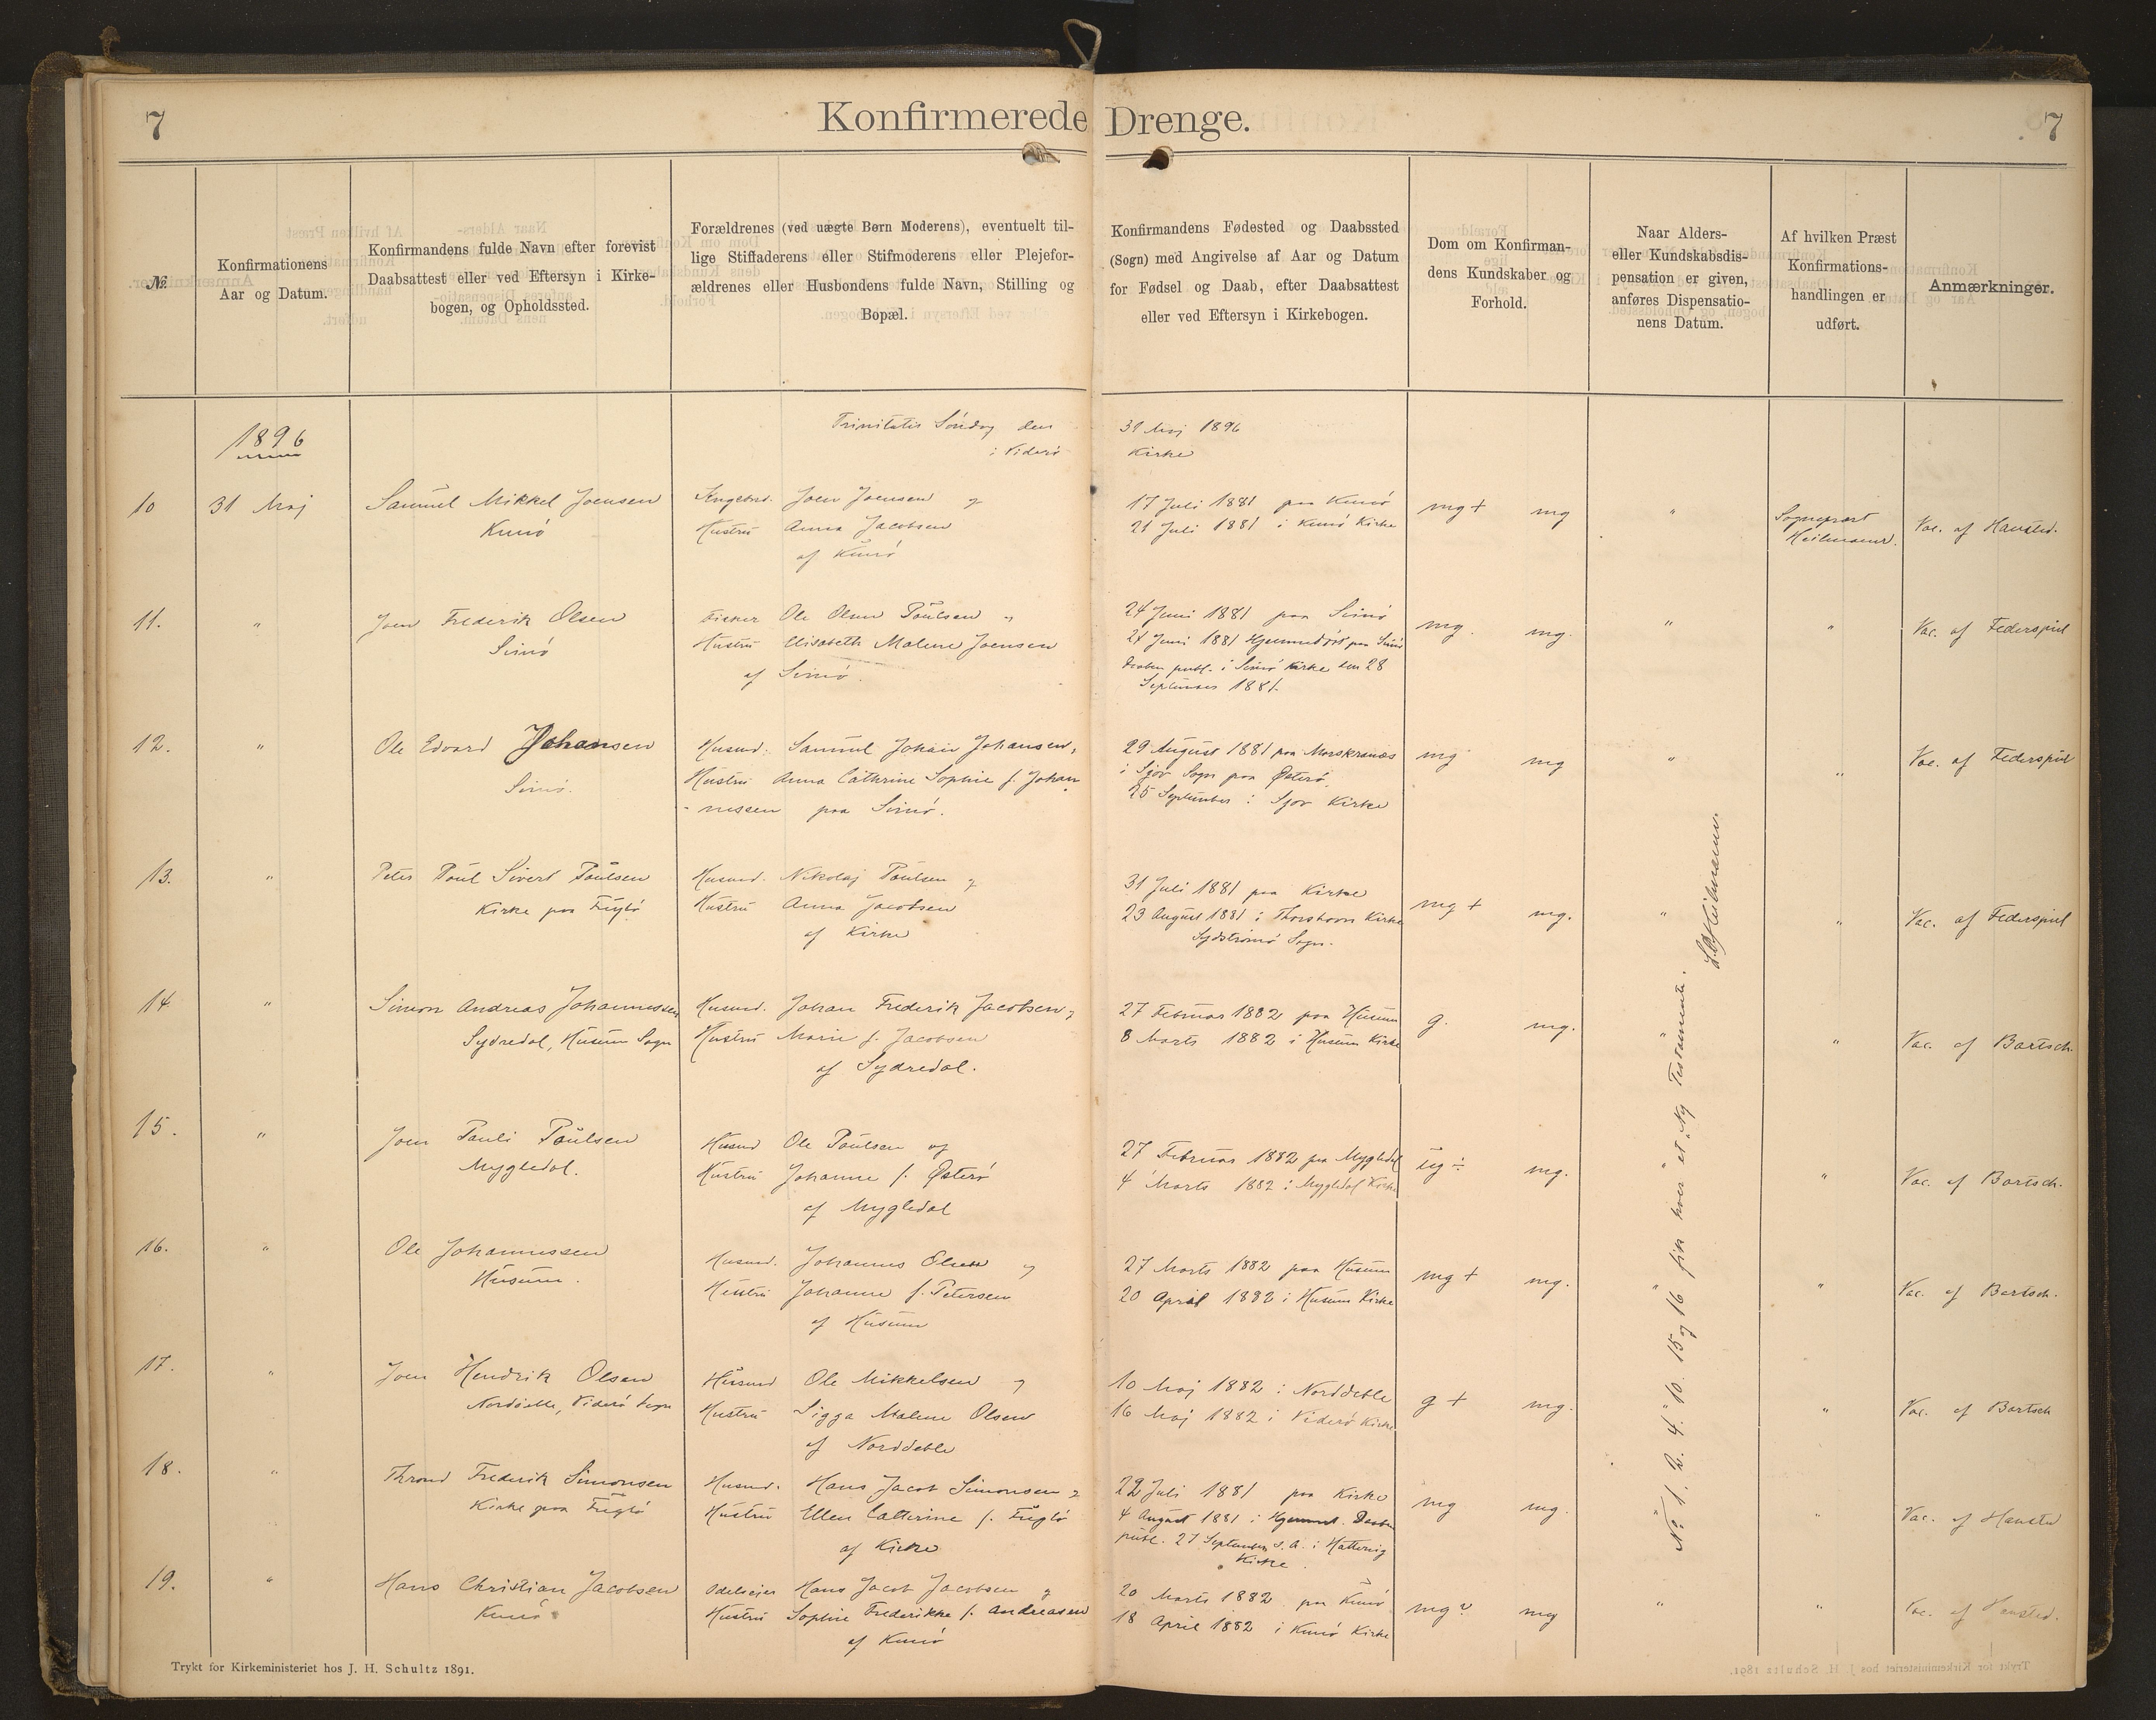 7
Konfirmerede Drenge.
7
№
Konfirmationens
Aar og Datum.
Konfirmandens fulde Navn efter forevist
Daabsattest eller ved Eftersyn i Kirke-
bogen, og Opholdssted.
Forældrenes (ved uægte Børn Moderens), eventuelt til-
lige Stiffaderens eller Stifmoderens eller Plejefor-
ældrenes eller Husbondens fulde Navn, Stilling og
Bopæl.
Konfirmandens Fødested og Daabssted
(Sogn) med Angivelse af Aar og Datum
for Fødsel og Daab, efter Daabsattest
eller ved Eftersyn i Kirkebogen.
Dom om Konfirman-
dens Kundskaber og
Forhold.
Naar Alders-
eller Kundskabsdis-
pensation er given,
anføres Dispensatio-
nens Datum.
Af hvilken Præst
Konfirmations-
handlingen er
udført.
Anmærkninger.
1896
Trinitatis Söndag den 31 Maj 1896
i Viderö Kirke
10
31 Maj
Samuel Mikkel Joensen
Kunö
Joen Joensen og
Hustru Anna Jacobsen
af Kunö
17 Juli 1881 paa Kunö
21 Juli 1881 i Kunö Kirke
mg +
mg
"
Sognepræst
Heilmann.
Vac. af Hansted.
11.
"
Joen Frederik Olsen
Svinö
Fisker Ole Olsen Poulsen "
Hustru Elisabeth Malene Joensen
af Svinö.
24 Juni 1881 paa Svinö
27 Juni 1881 Hjemmedöbt paa Svinö
Daaben publ. i Svinö Kirke den 28
September 1881.
mg.
mg.
"
"
Vac. af Federspiel
12.
"
Ole Edvard Johansen
Svinö.
Husmd. Samuel Johan Johansen,
Hustru Anna Cathrine Sophie f. Johan
- nessen paa Svinö.
29 August 1881 paa Morskranæs
i Sjov Sogn paa Østerö.
25 September i Sjov Kirke
mg
mg
"
"
Vac. af Federspiel
13.
"
Peter Poul Sivert Poulsen
Kirke paa Fuglö
Husmd. Nikolaj Poulsen og
Hustru Anna Jacobsen
af Kirke
31 Juli 1881 paa Kirke
23 August 1881 i Thorshavn Kirke
Sydströmö Sogn.
mg +
mg.
"
"
Vac. af Federspiel
14.
"
Simon Andreas Johannessen
Sydredal, Husum Sogn
Husmd. Johan Frederik Jacobsen og
Hustru Marie f. Jacobsen
af Sydredal.
27 Februar 1882 paa Husum
8 Marts 1882 i Husum Kirke
g.
mg.
"
"
Vac. af Bartsch.
15.
"
Joen Pauli Poulsen
Mygledal.
Husmd Ole Poulsen og
Hustru Johanne f. Østerö
af Mygledal
27 Februar 1882 paa Mygledal
4 Marts 1882 i Mygledal Kirke
ug ÷
mg.
"
"
Vac. af Bartsch.
16.
"
Ole Johannessen
Husum.
Husmd. Johannes Olsen og
Hustru Johanne f. Petersen
af Husum
27 Marts 1882 paa Husum
20 April 1882 i Husum Kirke
mg +
mg.
"
"
Vac. af Bartsch.
17.
"
Joen Hendrik Olsen
Norddeble, Viderö Sogn
Husmd Ole Mikkelsen og
Hustru Sigga Malene Olsen
af Norddeble
10 Maj 1882 i Norddeble
16 Maj 1882 i Viderö Kirke
g +
mg.
"
"
Vac. af Bartsch
18.
"
Thrond Frederik Simonsen
Kirke paa Fuglö
Husmd. Hans Jacob Simonsen og
Hustru Ellen Catterine f. Fuglö
af Kirke
22 Juli 1881 paa Kirke
4 August 1881 i Hjemmet. Daaben
publ. 27 September s. A. i Hattervig
Kirke.
mg
mg.
"
"
Vac. af Hansted
19.
"
Hans Christian Jacobsen
Kunö
Odelsejer Hans Jacob Jacobsen og
Hustru Sophie Frederikke f. Andreasen
af Kunö
20 Marts 1882 paa Kunö
18 April 1882 i Kunö Kirke
mg?
mg
"
"
Vac. af Hansted.
№ 1. 2. 4. 10. 15 og 16 fik hver et "Ny Testamente".
Heilmann.
Trykt for Kirkeministeriet hos J. H. Schultz 1891.